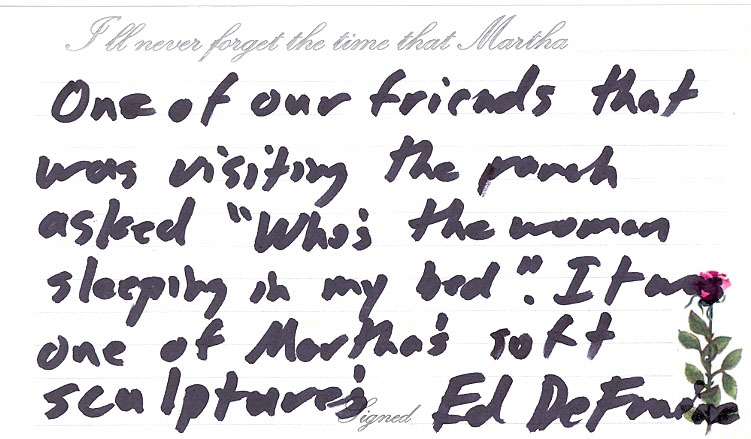 I'll never forget the time that Martha
One of our friends that
was visiting the ranch
asked "Who's the woman
sleeping in my bed". It was
one of Martha's soft
sculpture's Signed Ed